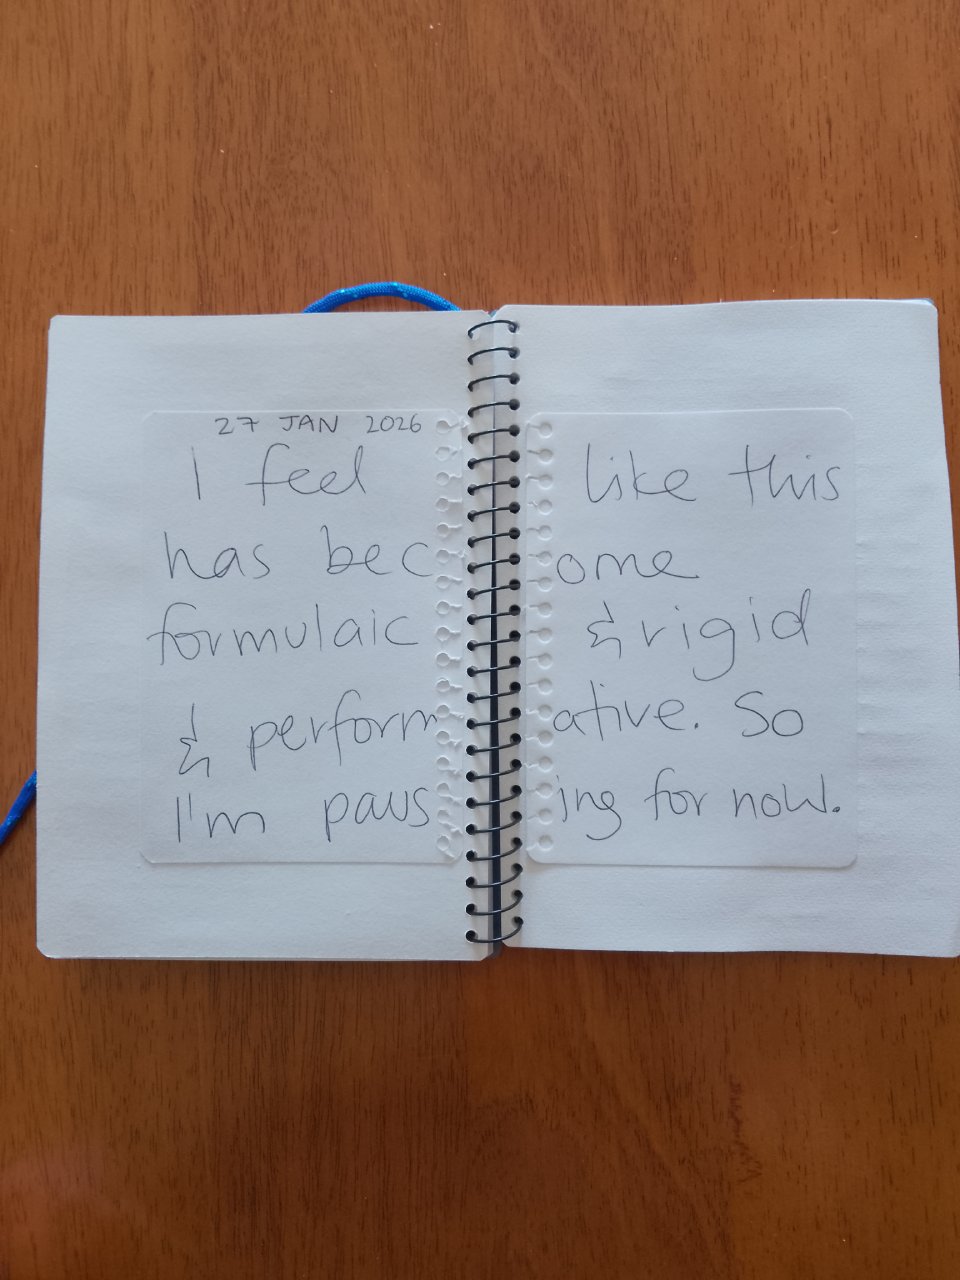 27 JAN 2026
I feel like this
has become
formulaic & rigid
& performative. So
I'm pausing for now.